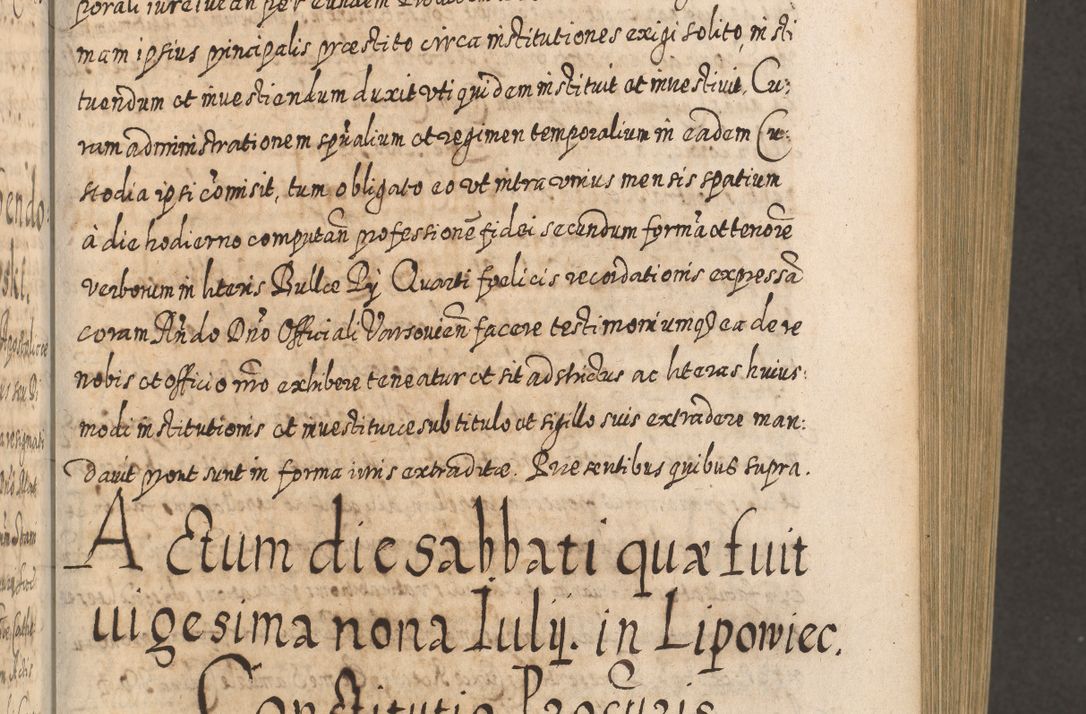 porali iure ... per eundem
mam ipsius principalis præstito circa institutiones exigi solito, insti
tuendum et investiendum duxit uti quidem instituit et investivit, Cu:
ram administrationem spũalium et regimen temporalium in eadem Cu:
stodia ipsi cõmisit, tum obligato eo ut intra unius mensis spatium
à die hodierno computañ professionẽ fidei secundum formã et tenorẽ
verborum in literis Bullæ Pij Quarti foelicis recordationis expressã
coram Añdo Dño Officiali Varsovieñ facere testimoniumq3 ea de re
nobis et officio nr̃o exhibere teneatur et sit adstrictus ac literas huius:
modi institutionis et investituræ sub titulo et sigillo suis extradere man:
davit prout sunt in forma iuris extraditæ. Præsentibus quibus supra.
Actum die sabbati quæ fuit
uigesima nona Iulij. in Lipowiec.
Constitutio Procũris